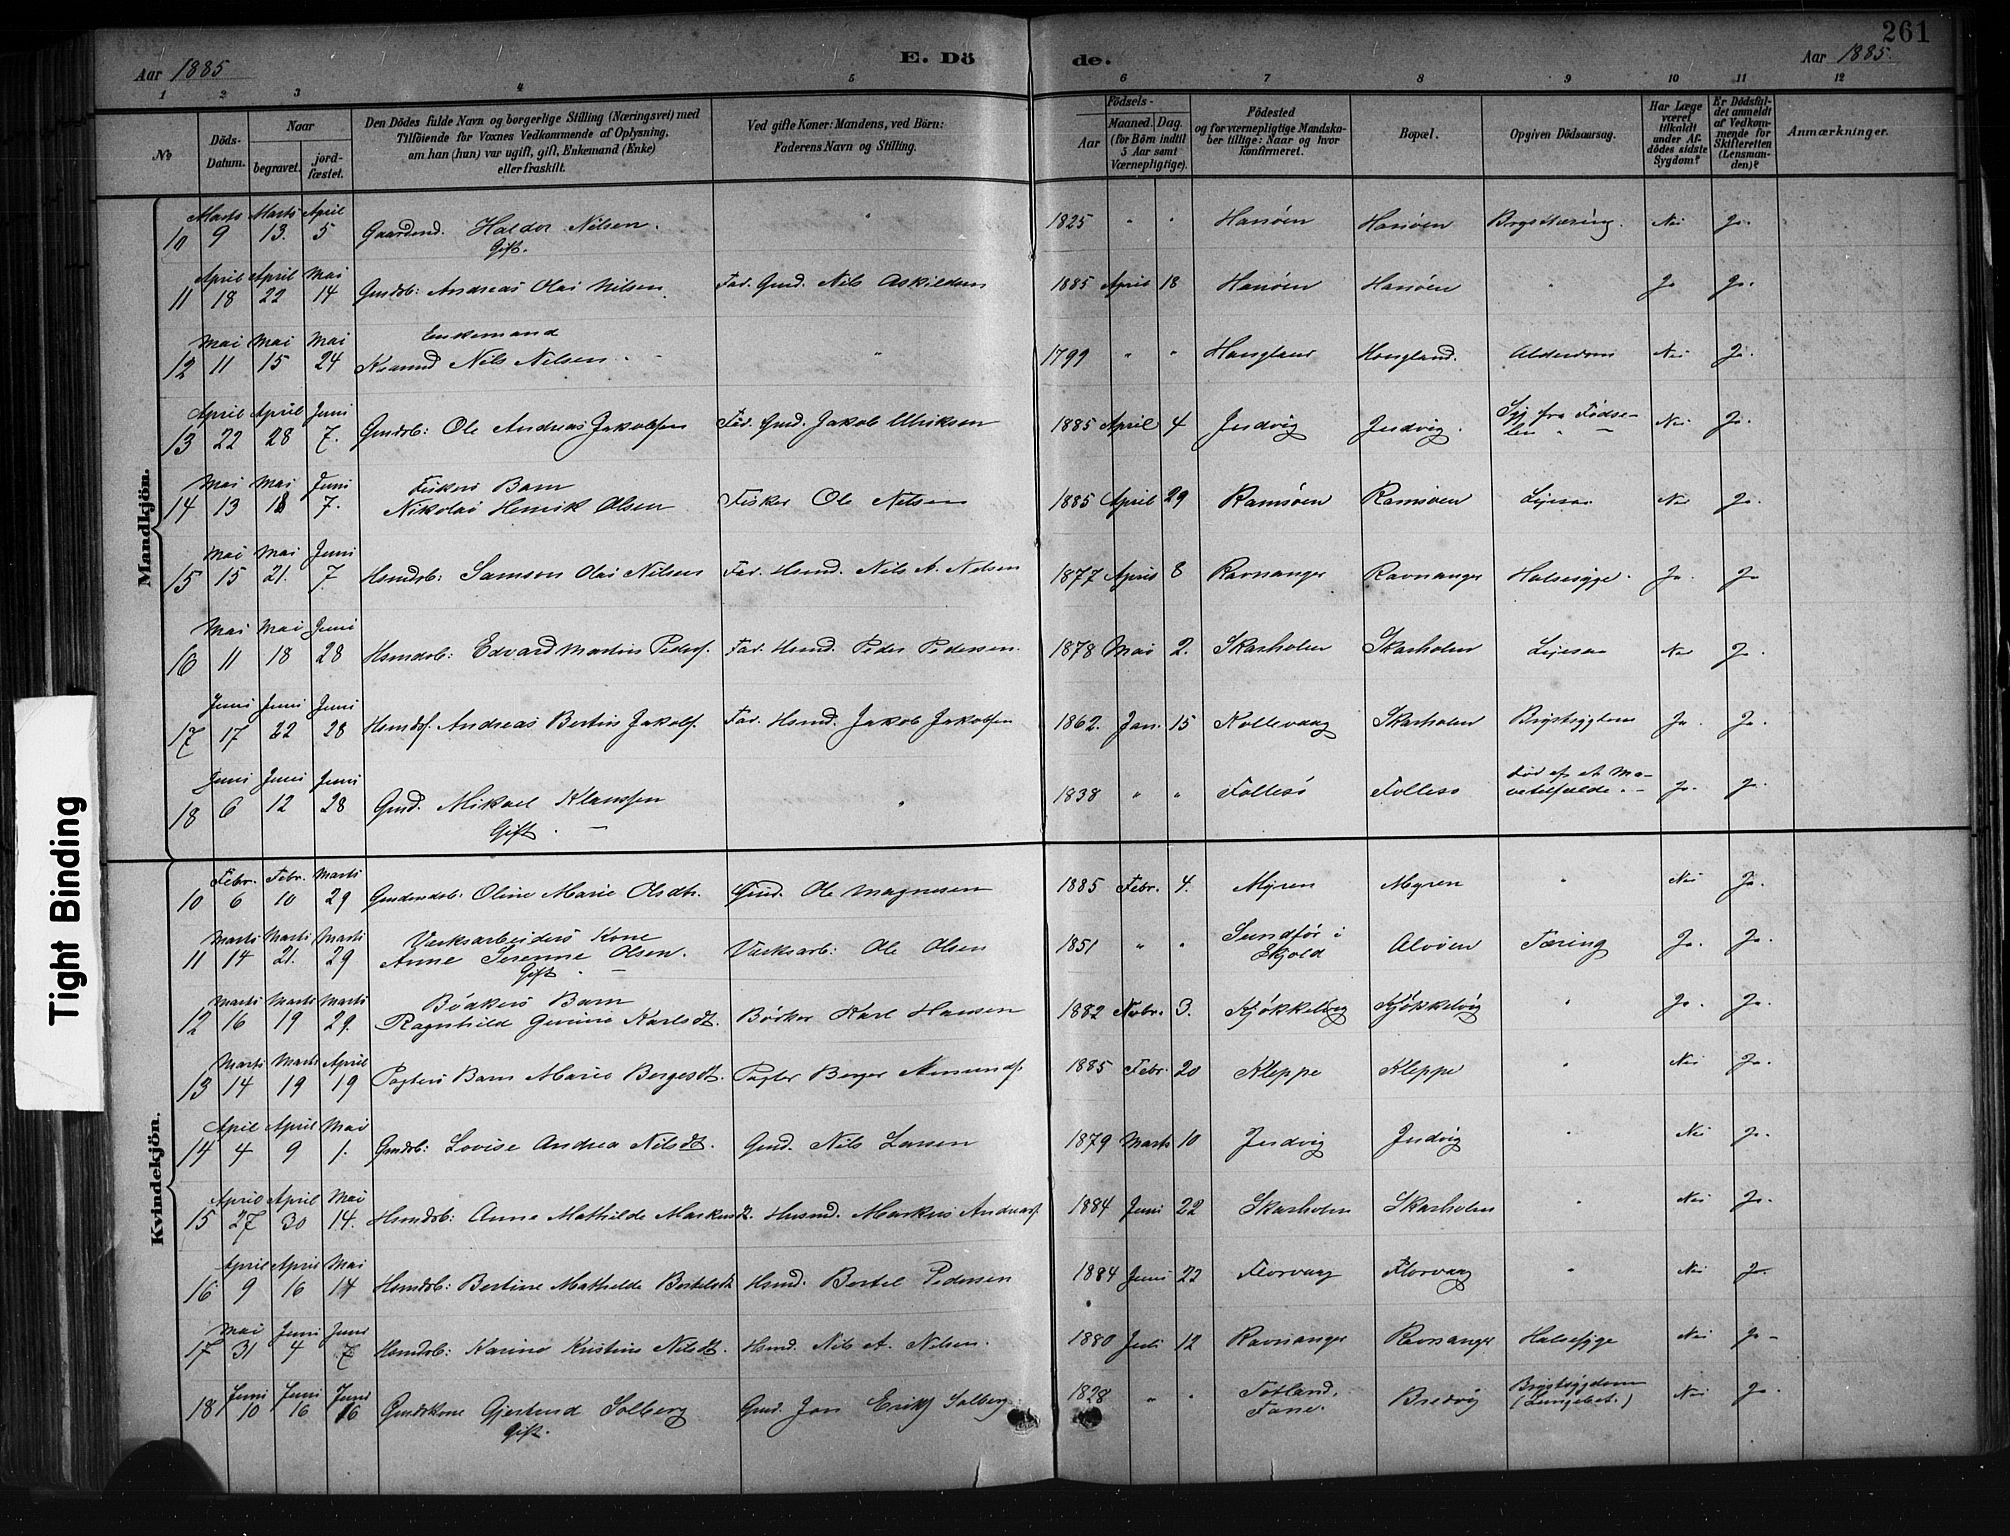 261
Aar 1885
E. Dö
de.
Aar 1885.
1 2 3 4 5 6 7 8 9 10 11 12
No
Döds-
Datum.
Naar
begravet. jord-
fæstet.
Den Dödes fulde Navn og borgerlige Stilling (Næringsvei) med
Tilföiende for Voxnes Vedkommende af Oplysning,
om han (hun) var ugift, gift, Enkemand (Enke)
eller fraskilt.
Ved gifte Koner: Mandens, ved Börn:
Faderens Navn og Stilling.
Födsels-
Aar Maaned. Dag.
(for Börn indtil
5 Aar samt
Værnepligtige).
Födested
og for værnepligtige Mandska-
ber tillige: Naar og hvor
konfirmeret.
Bopæl.
Opgiven Dödsaarsag.
Har Læge
været
tilkaldt
under Af-
dödes sidste
Sygdom?
Er Dödsfal-
det anmeldt
af Vedkom-
mende for
Skifteretten
(Lensman-
den)?
Anmærkninger.
Mandkjön.
Marts Marts April
10 9 13. 5 Gaardmd. Haldor Nilsen. " 1825 " " Hanöen Hanöen Brysttæring. Nei Ja.
Gift.
April April Mai
11 18 22 14 Gmdsb: Andreas Olai Nilsen Fad. Gmd. Nils Askildsen 1885 April 18 Hanöen Hanöen " Ja Ja.
Mai Mai Mai Enkemand
12 11 15 24 Nils Nilsen. " 1799 " " Haugland Haugland. Alderdom Nei Ja.
April April Juni
13 22 28 7. Gmdsb: Ole Andreas Jakobsen Fad. Gmd. Jakob Ulriksen 1885 April 4 Indvig Indvig. Syg fra Födse-
len Nei Ja.
Mai Mai Juni Fiskers Barn
14 13 18 7. Nikolai Henrik Olsen Fisker Ole Nilsen 1885 April 29 Ramsöen Ramsöen Nei Ja.
Mai Mai Juni
15 15 21. 7. Hsmdsb: Samson Olai Nilsen Fad. Hsmd. Nils A. Nilsen 1877 April 8 Ravnanger Ravnanger Halssyge. Ja. Ja
Mai Mai Juni
16 11 18 28 Hsmdsb: Edvard Martin Peders. Fad. Hsmd. Peder Pedersen. 1878 Mai 2. Skarholm Skarholm Nei Ja.
Juni Juni Juni
17 17 22 28 Hsmds. Andreas Bertin Jakobs. Fad. Hsmd. Jakob Jakobsen 1862. Jan. 15 Kollevaag Skarholm Brystsygdom Ja. Ja.
Juni Juni Juni
18 6 12 28 Gmd. Mikael Klaussen " 1838 " " Follesö Follesö Död af et Ma-
vetilfælde. Ja. Ja.
Gift.
Kvindekjön.
Febr. Febr. Marts
10 6 10 29 Oline Marie Olsdtr. Gmd. Ole Magnesen 1885 Febr. 4. Myren Myren " Nei Ja.
Marts Marts Marts Værksarbeiders Kone
11 14 21. 29 Anne Serenne Olsen. Værksarb: Ole Olsen 1851 " " Sundför i
Skjold Alvöen Tæring Ja. Ja.
Gift.
Marts Marts Marts Bödkers Barn
12 16 19 29. Ragnhild Karlsdt. Bödker Karl Hansen 1882 Novbr. 3. Kjökkelvig Kjökkelvig " Ja. Ja.
Marts Marts April
13 14 19 19 Pagters Barn Marie Bergesdt. Pagter Berger 1885 Febr. 20 Kleppe Kleppe " Nei Ja.
April April Mai
14 4 9 1. Gmdsb: Lovise Andrea Nilsdt. Gmd. Nils Larsen 1879 Marts 10 Indvig Indvig " Nei Ja.
April April Mai
15 27 30 14. Hsmdsb: Anna Mathilde Markusdt. Husmd. Markus Andreas. 1884 Juni 22 Skarholm Skarholm " Nei Ja.
April April Mai
16 9 16 14 Hsmdsb: Bertine Mathilde Bertelsdt Hsmd. Bertel Pedersen 1884 Juni 22 Florvaag Florvaag " Nei Ja.
Mai Juni Juni
17 31 4 7 Hsmdsb: Karine Kristine Nilsdt. Hsmd. Nils A. Nilsen. 1880 Juli 12 Ravnanger Ravnanger Halssyge Nei Ja
Juni Juni Juni
18 10 16 16 Gmdskone Gjertrud Solberg Gmd. Jon Eriks Solberg. 1828 " " Totland,
Fane. Bredvig Brystsygdom
(Lungebet.) Nei Ja.
Gift.
Tight Binding